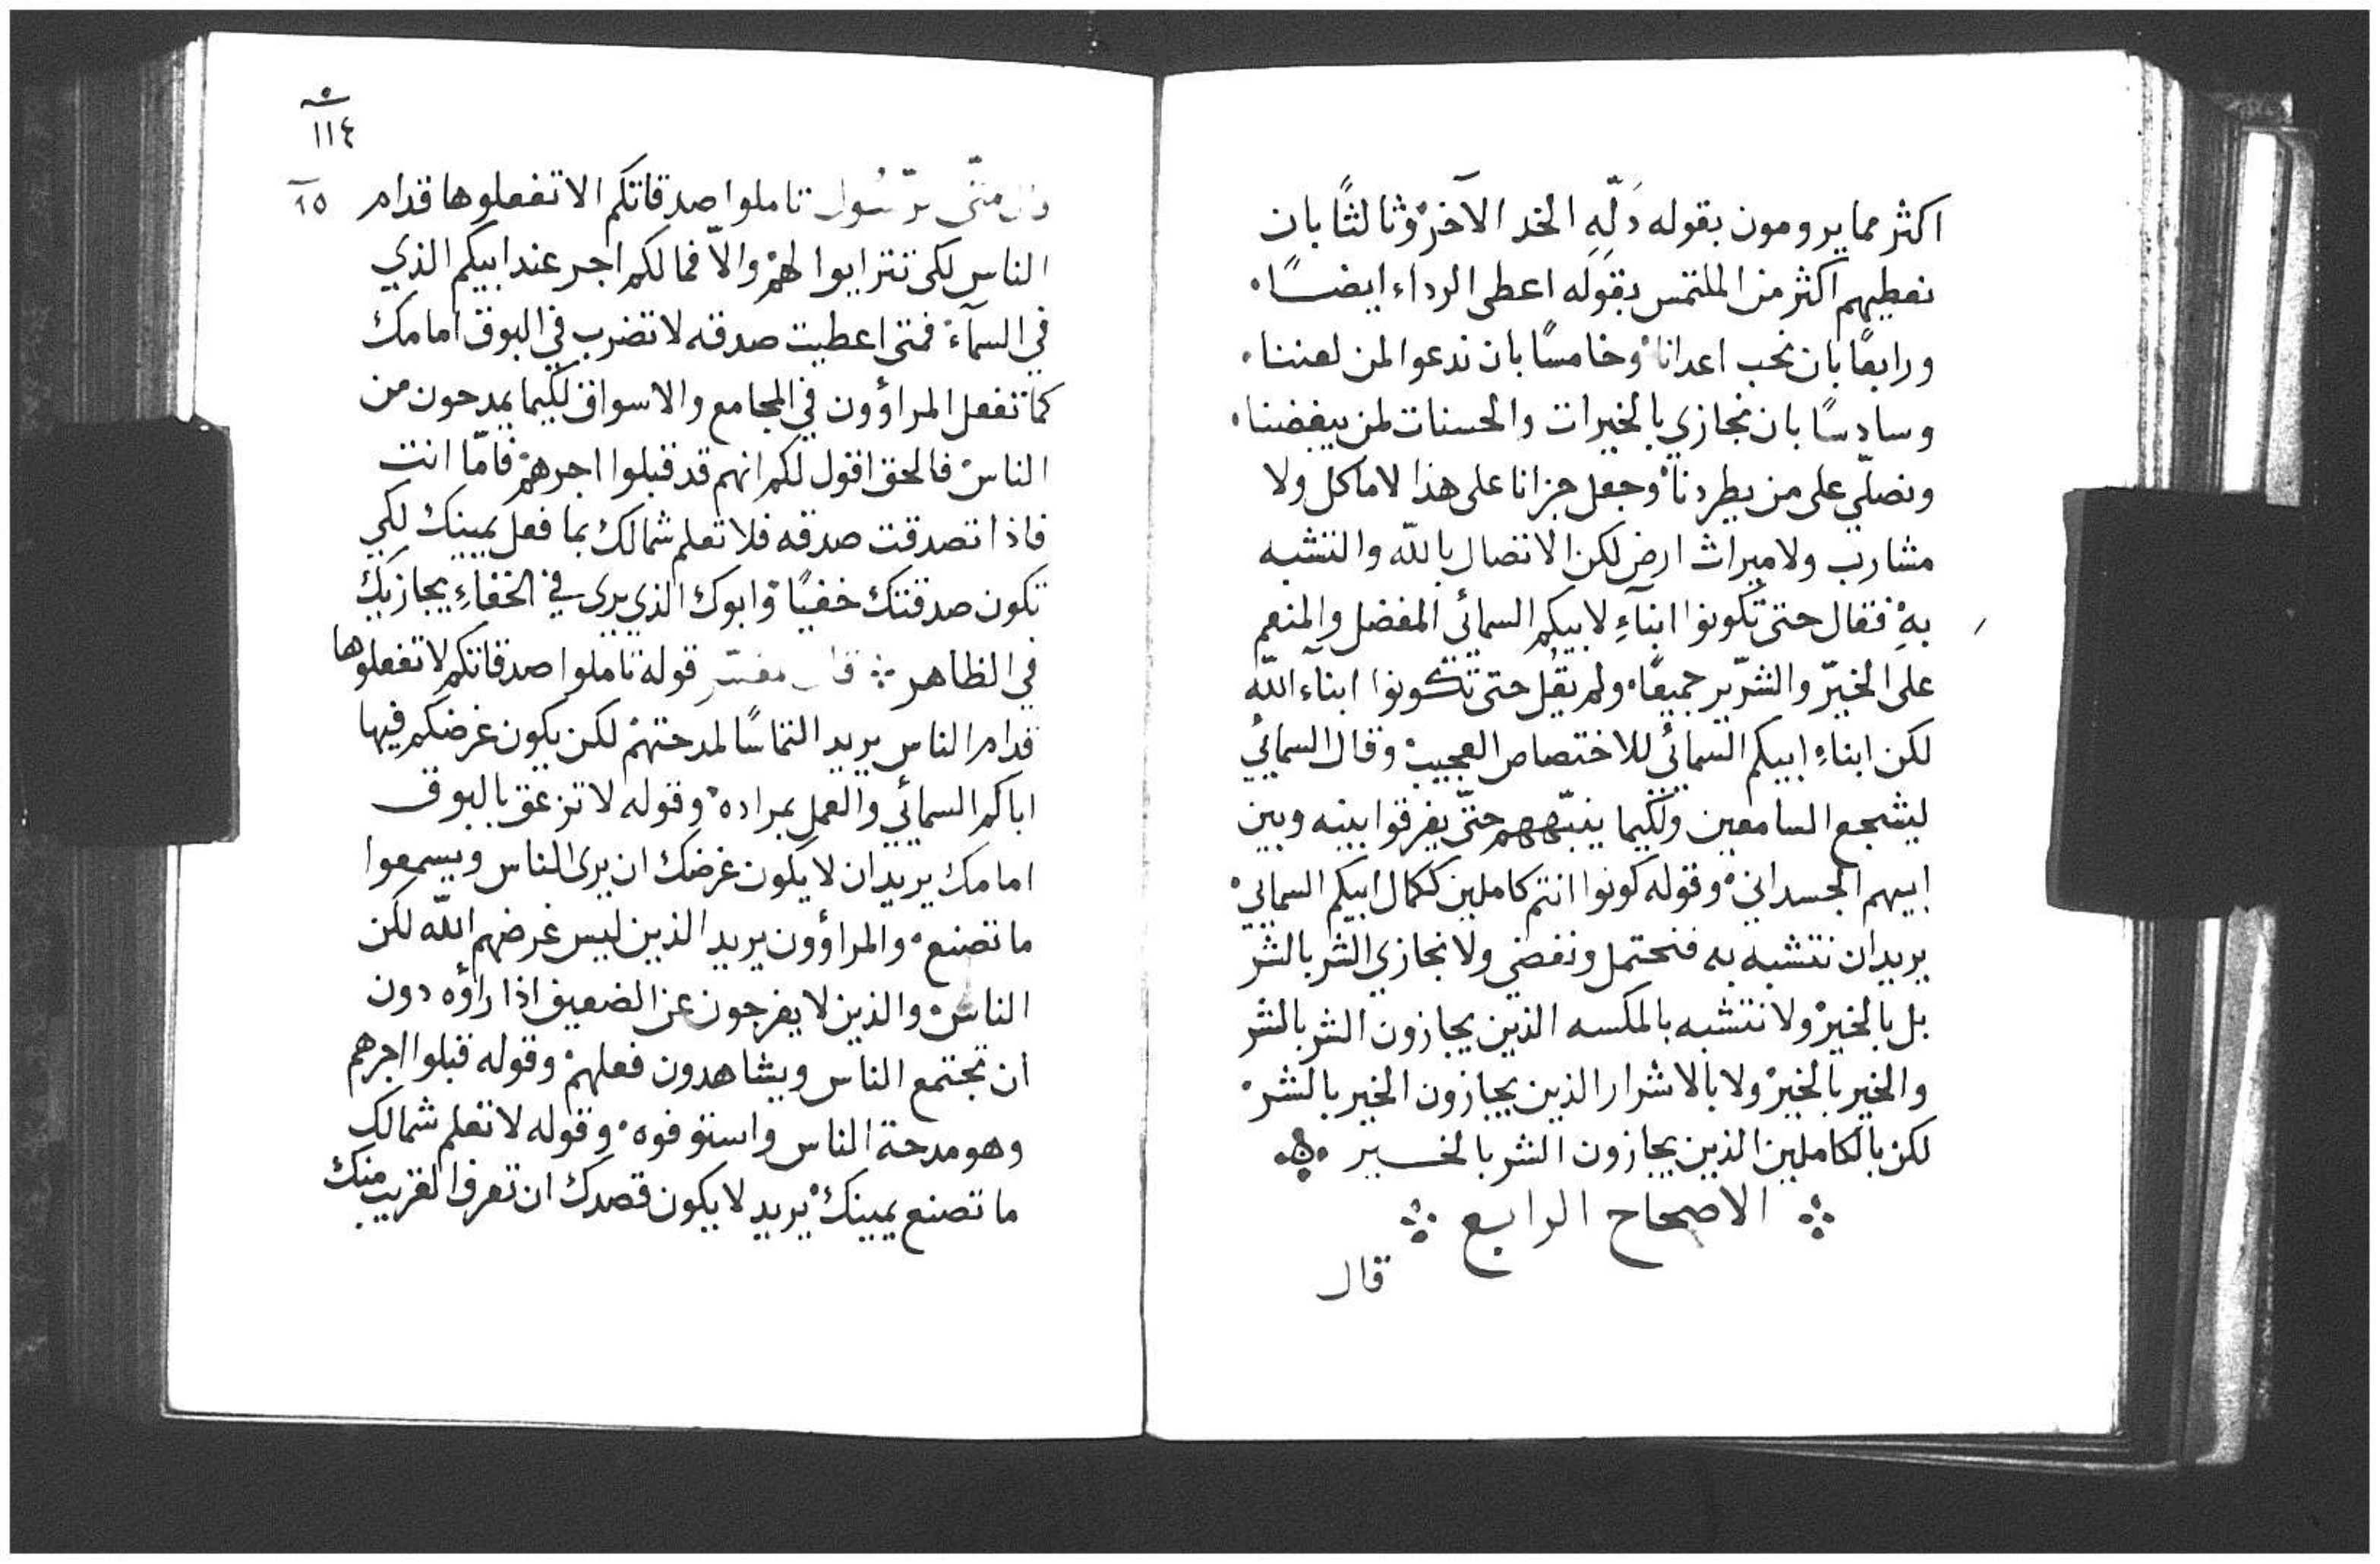 اكثر مما يرومون بقوله دَلّهِ الخد الآخر وثالثًا بان
نعطيهم اكثر من الملتمس بقوله اعطى الرداء ايضًا
ورابعًا بان نحب اعدانا وخامسًا بان ندعوا لمن لعننا
وسادسًا بان نجازي بالخيرات والحسنات لمن يبغضنا
ونصلّي على من يطردنا وجعل جزانا على هذا لا ماكل ولا
مشارب ولا ميراث ارض لكن الاتصال بالله والتشبه
بهِ فقال حتى تكونوا ابنآءِ لابيكم السمائي المفضل والمنعم
على الخيّر والشرّير جميعًا ولم يقُل حتى تكونوا ابنآء الله
لكن ابناءِ ابيكم السمائي للاختصاص العجيب وقال السمائي
ليشجع السامعين ولكيما ينبّههم حتّى يفرقوا بينه وبين
ابيهم الجسداني وقوله كونوا انتم كاملين ككمال ابيكم السمائي
يريد ان نتشبه به فنحتمل ونغضي ولا نجازي الشر بالشر
بل بالخير ولا نتشبه بالمكسه الذين يجازون الشر بالشر
والخير بالخير ولا بالاشرار الذين يجازون الخير بالشر
لكن بالكاملين الذين يجازون الشر بالخير
الاصحاح الرابع
قال
١١٤
قال متّى الرّسُول تاملوا صدقاتكم الا تفعلوها قدام
٢٥
الناس لكي تترايوا لهم والّا فما لكم اجر عند ابيكم الذي
في السمآء فمتى اعطيت صدقه لا تضرب في البوق امامك
كما تفعل المراؤون في المجامع والاسواق لكيما يمدحون من
الناس فالحق اقول لكم انهم قد قبلوا اجرهم فامّا انت
فاذا تصدقت صدقه فلا تعلم شمالك بما فعل يمينك لكي
تكون صدقتك خفيًا وابوك الذي يرى في الخفاءِ يجازيك
في الظاهر قال مفسّر قوله تاملوا صدقاتكم لا تفعلوها
قدام الناس يريد التماسًا لمدحتهم لكن يكون غرضكم فيها
اباكم السمائي والعمل بمراده وقوله لا تزعق بالبوق
امامك يريد ان لا يكون غرضك ان يرى الناس ويسمعوا
ما تصنع والمراؤون يريد الذين ليس غرضهم الله لكن
الناس والذين لا يفرجون عن الضعيف اذا راؤه دون
ان تجتمع الناس ويشاهدون فعلهم وقوله قبلوا اجرهم
وهو مدحة الناس واستوفوه وقوله لا تعلم شمالك
ما تصنع يمينك يريد لا يكون قصدك ان تعرف القريب منك